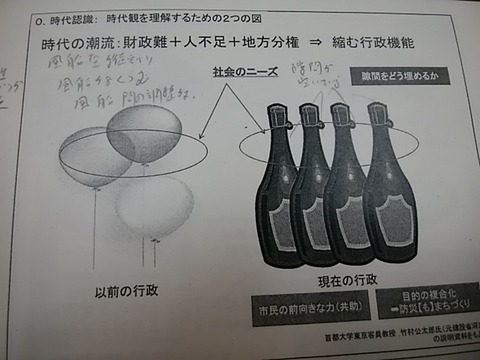 0. 時代認識： 時代観を理解するための2つの図
時代の潮流：財政難＋人不足＋地方分権 ⇒ 縮む行政機能
社会のニーズ
隙間が
空いている
隙間をどう埋めるか
以前の行政
現在の行政
市民の前向きな力（共助）
目的の複合化
➡防災【も】まちづくり
首都大学東京客員教授 竹村公太郎氏（元建設省河
の説明資料をも